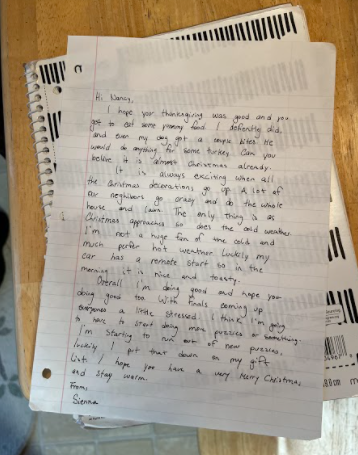 Hi Nancy,
I hope your thanksgiving was good and you
got to eat some yummy food. I defiently did,
and even my dog got a couple bites. He
would do anything for some turkey. Can you
belive it is almost Christmas already.
It is always exciting when all
the Christmas decorations go up. A lot of
our neighbors go crazy and do the whole
house and lawn. The only thing is as
Christmas approaches so does the cold weather.
I'm not a huge fan of the cold and
much perfer hot weather. Luckily my
car has a remote start so in the
morning it is nice and toasty.
Overall I'm doing good and hope your
doing good too. With finals coming up
everyones a little stressed. I think I'm going
to have to start doing more puzzles or something.
I'm starting to run out of new puzzles,
luckily I put that down on my gift
list. I hope you have a very Merry Christmas
and stay warm.
From,
Sienna